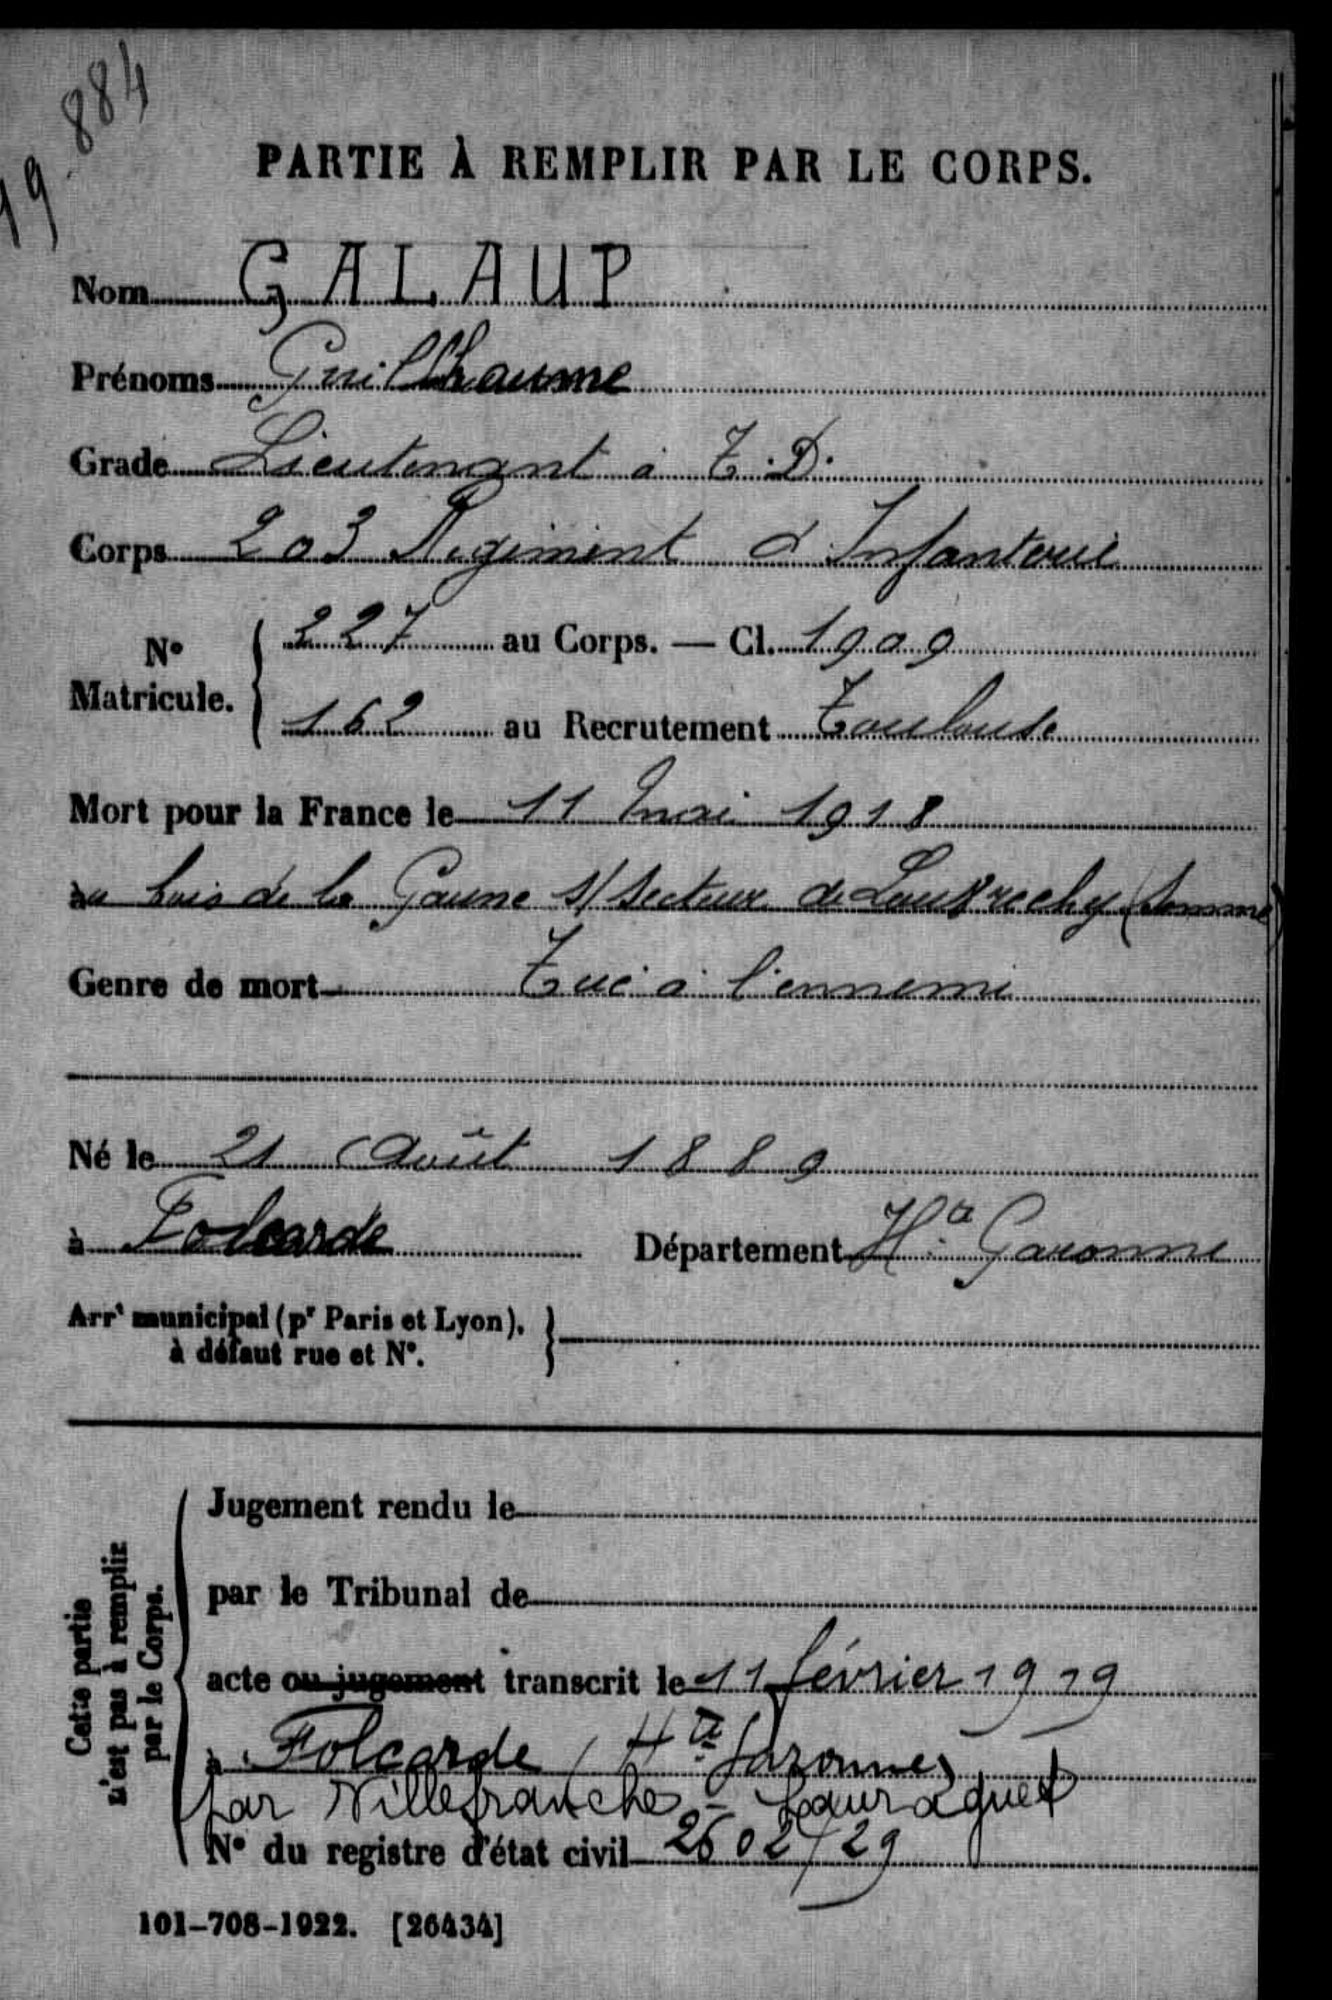 19 884
PARTIE À REMPLIR PAR LE CORPS.
Nom GALAUP
Prénoms Guilhaume
Grade Lieutenant à T.D.
Corps 203 Régiment d'Infanterie
No Matricule. 227 au Corps. — Cl. 1909
162 au Recrutement Toulouse
Mort pour la France le 11 Mai 1918
au bois de la Gaune s/secteur de (Somme)
Genre de mort Tué à l'ennemi
Né le 21 Août 1889
à Folcarde Département Hte Garonne
Arrt municipal (pr Paris et Lyon),
à défaut rue et No.
Cette partie
n'est pas à remplir
par le Corps.
Jugement rendu le
par le Tribunal de
acte ou jugement transcrit le 11 février 1919
à Folcarde Hte Garonne
par Villefranche - Lauraguet
No du registre d'état civil 2602/29
101-708-1922. [26434]